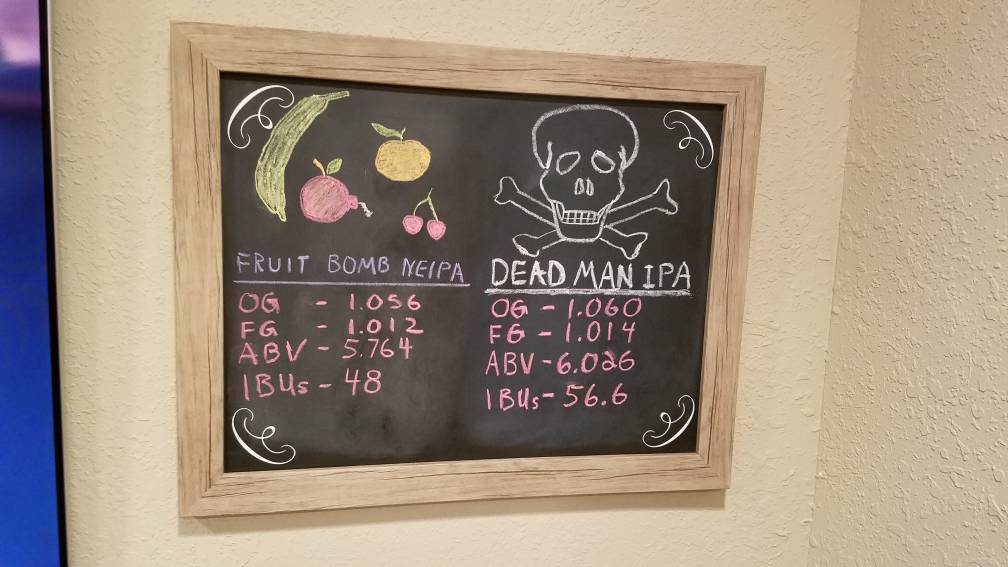 FRUIT BOMB NEIPA
OG - 1.056
FG - 1.012
ABV - 5.764
IBUs - 48
DEAD MAN IPA
OG - 1.060
FG - 1.014
ABV - 6.026
IBUs - 56.6